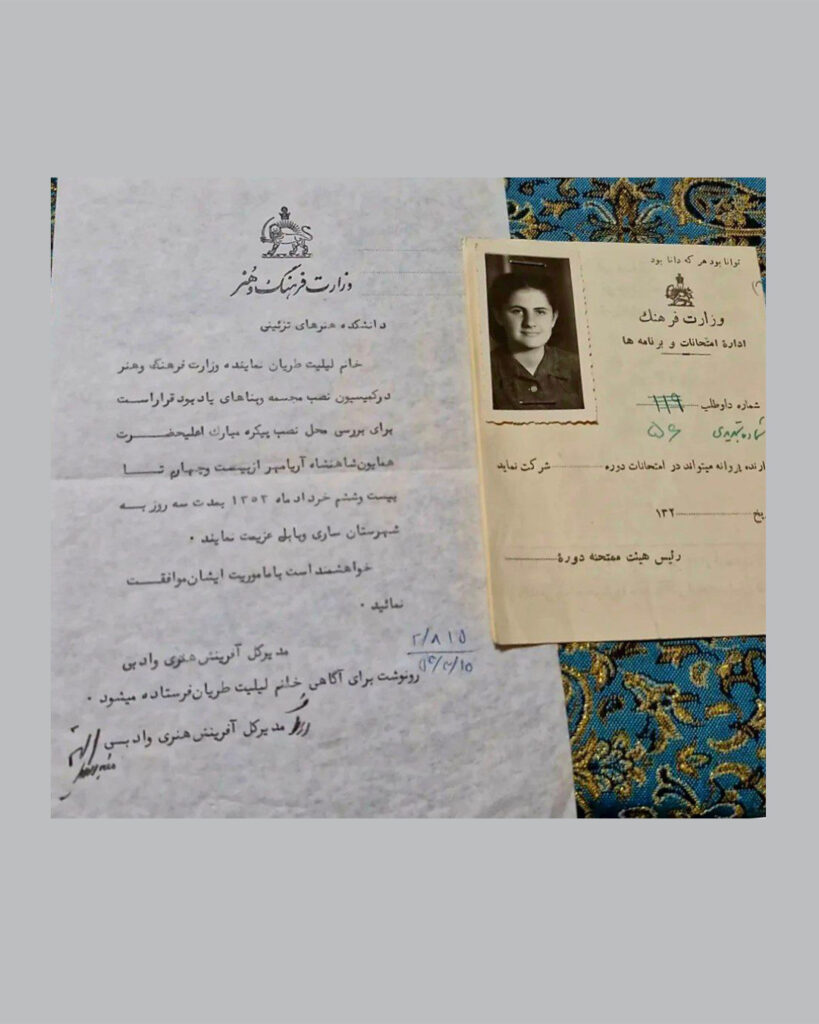 وزارت فرهنگ و هنر
دانشکده هنرهای تزئینی
خانم لیلیت طریان نماینده وزارت فرهنگ وهنر
درکمیسیون نصب مجسمه وبناهای یاد بود قراراست
برای بررسی محل نصب پیکره مبارك اعلیحضرت
همایون شاهنشاه آریامهر ازبیست وچهارم تا
بیست وششم خرداد ماه ۱۳۵۴ بمدت سه روز به
شهرستان ساری وبابل عزیمت نمایند .
خواهشمند است باماموریت ایشان موافقت
نمائید .
مدیرکل آفرینش هنری وادبی
۲/۸۱۵
۵۴/۳/۱۵
رونوشت برای آگاهی خانم لیلیت طریان فرستاده میشود .
مدیرکل آفرینش هنری وادبی
توانا بود هر که دانا بود
وزارت فرهنگ
ادارهٔ امتحانات و برنامه ها
شماره داوطلب ۱۱۹
۵۶
ارنده پروانه میتواند در امتحانات دوره شرکت نماید
یخ ۱۳۲
رئیس هیئت ممتحنه دورهٔ